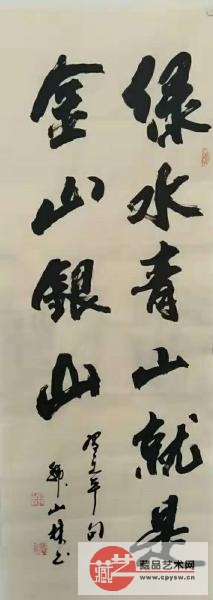 绿水青山就是
金山銀山
山林书
藏品艺术网
www.cpysw.cn